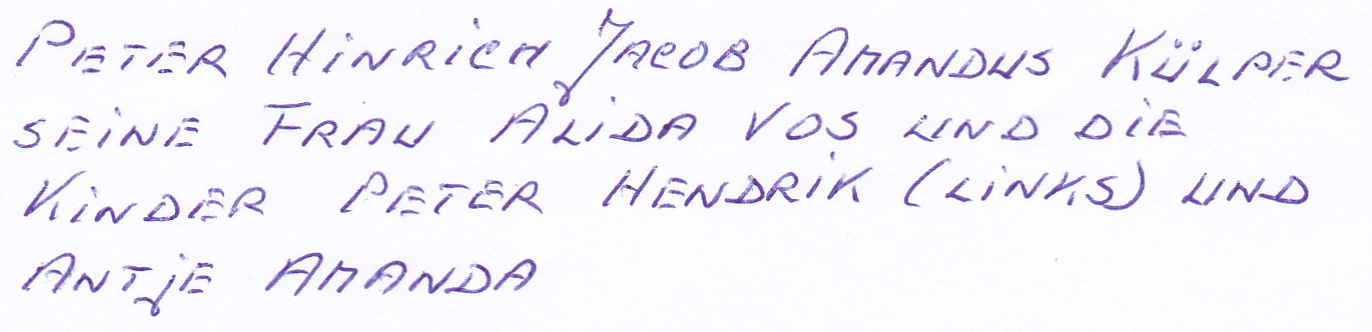 Peter Hinrich Jacob Amandus Külper
seine Frau Alida Vos und die
Kinder Peter Hendrik (links) und
Antje Amanda